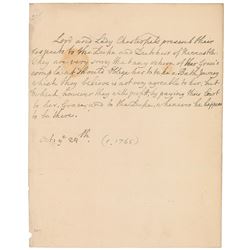 Lord and Lady Chesterfield present their
respects to the Duke and Dutchess of Newcastle.
They are very sorry that any return of her Grace's
complaint shou'd oblige her to take a Bath Journey
which they believe is not very agreable to her, but
by which however they will profit by paying their Court
to her Grace, and to the Duke, whenever he happens
to be there.
Oct. ye 29th. (c. 1765)